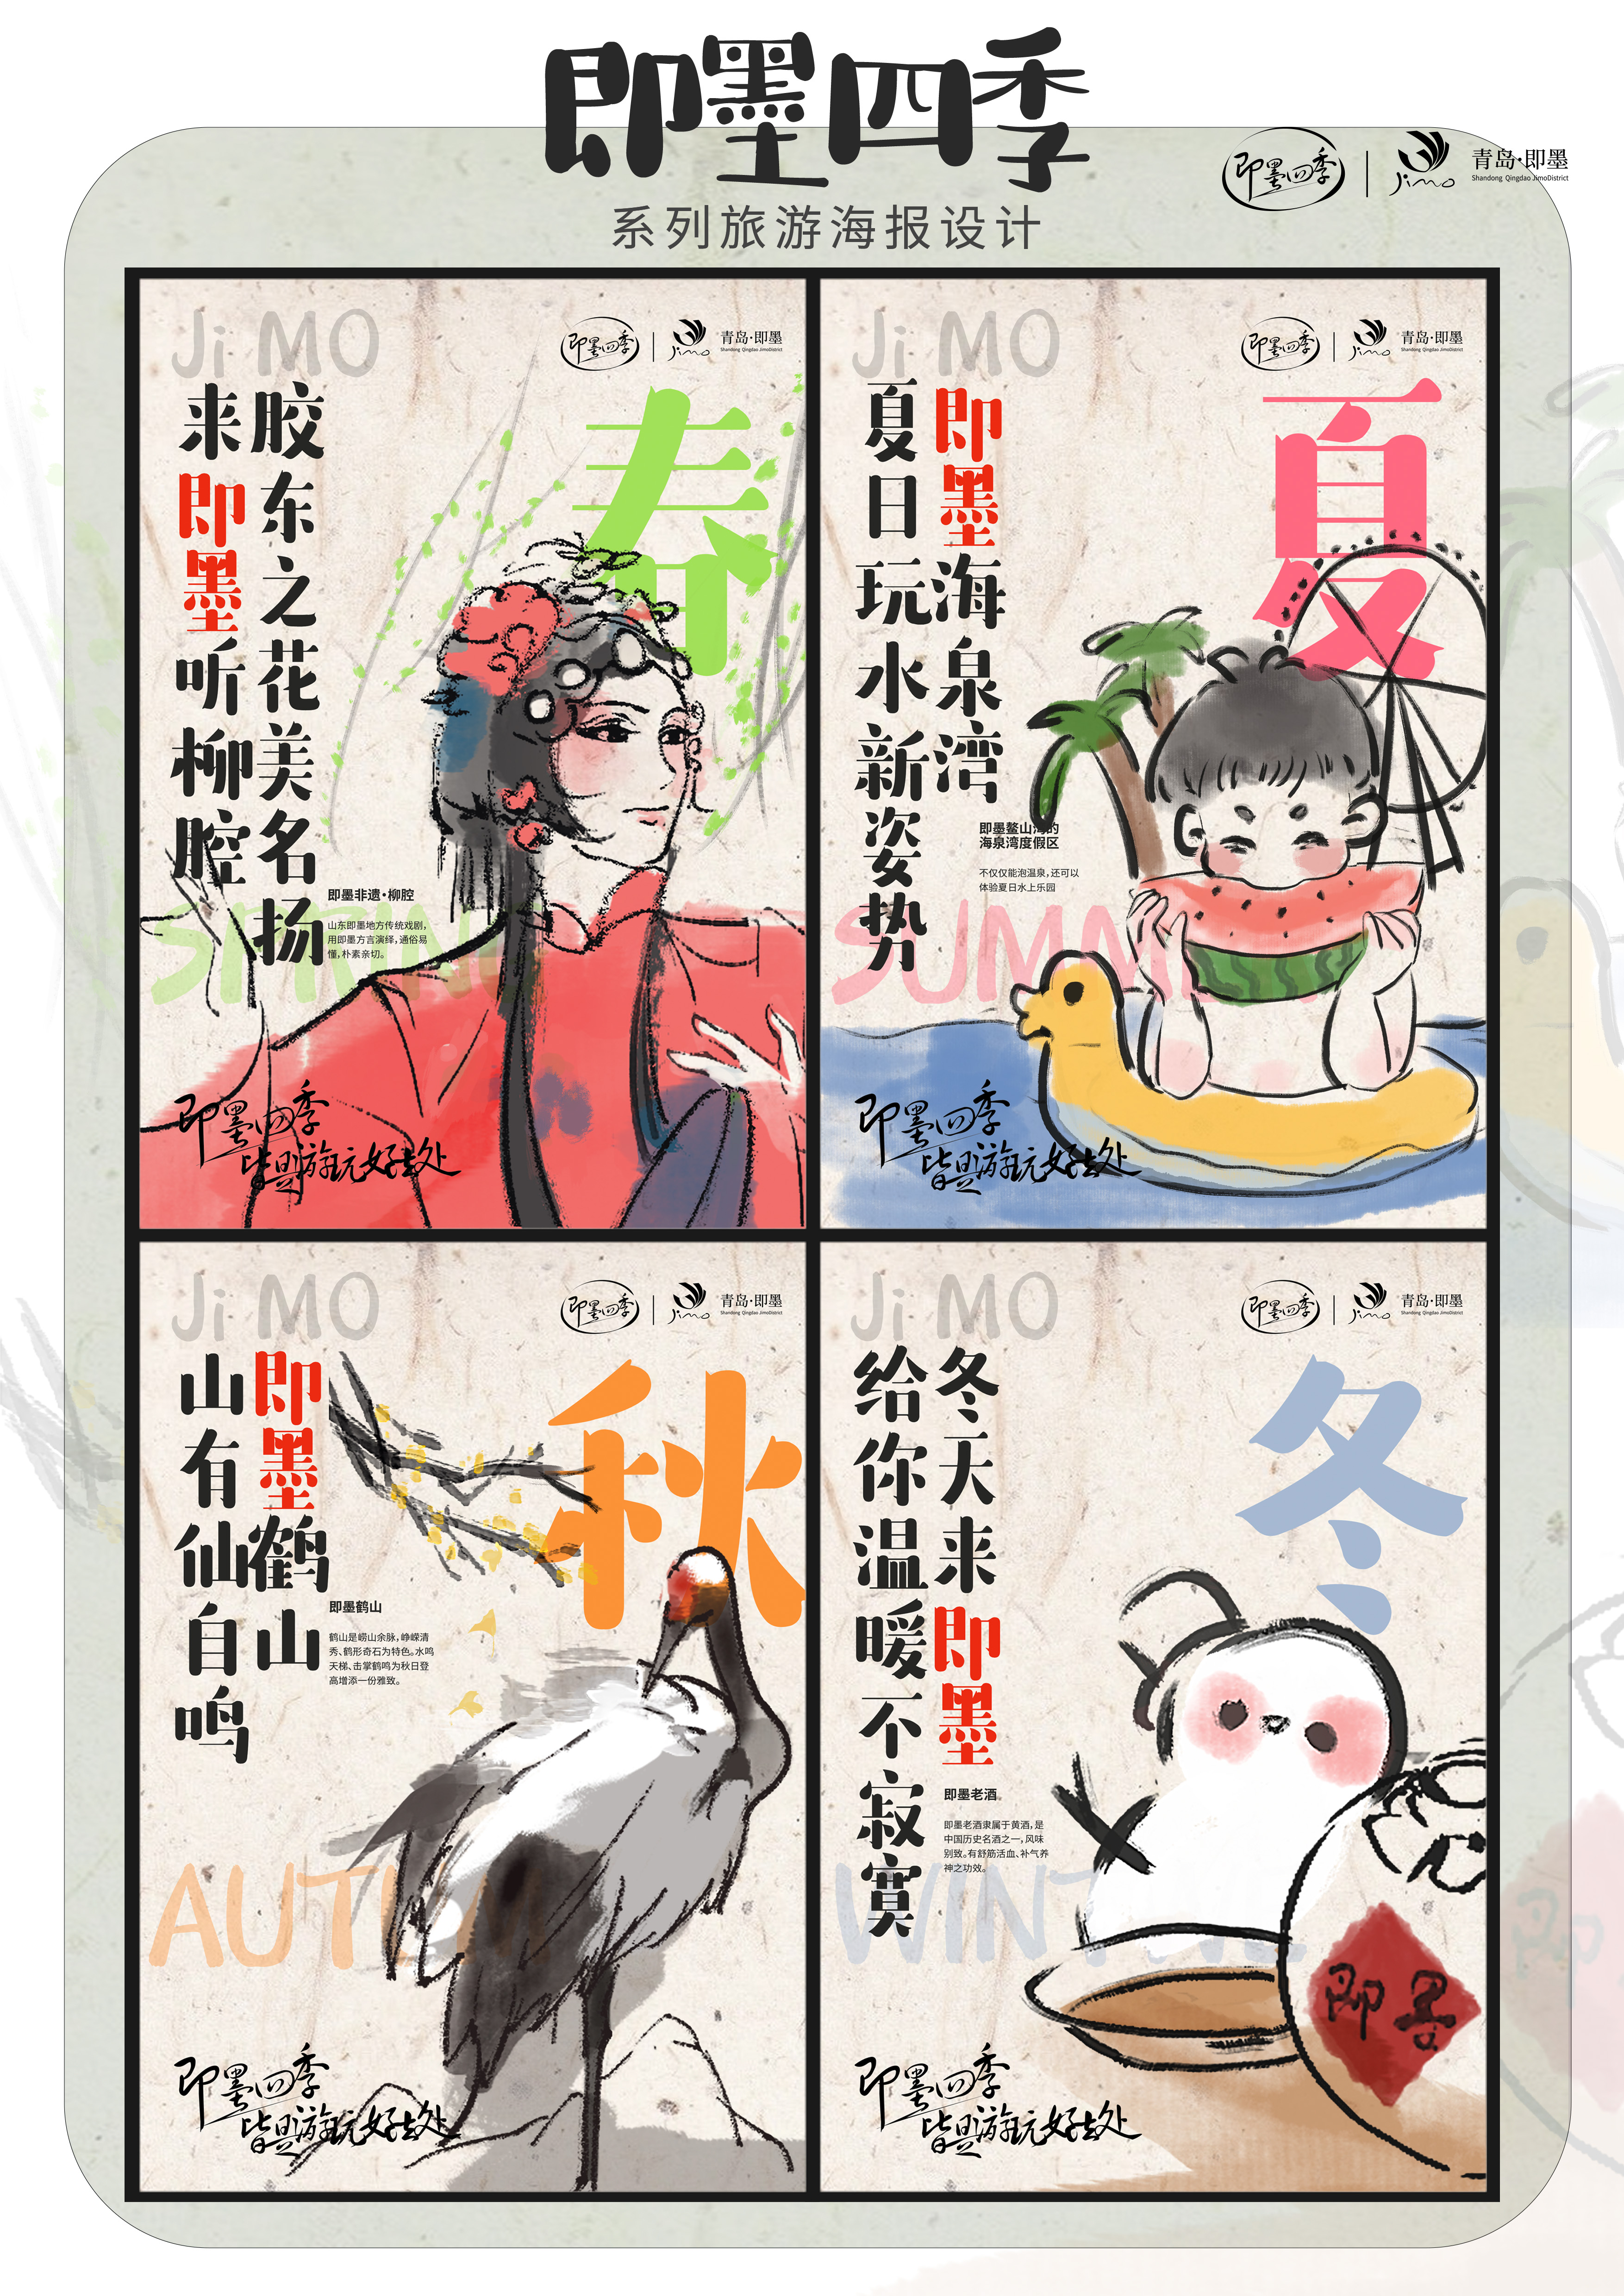 即墨四季
系列旅游海报设计
即墨四季
Jimo
青岛·即墨
Shandong Qingdao JimoDistrict
Ji MO
即墨四季
Jimo
青岛·即墨
Shandong Qingdao JimoDistrict
春
胶东之花美名扬
来即墨听柳腔
即墨非遗·柳腔
山东即墨地方传统戏剧，
用即墨方言演绎，通俗易
懂，朴素亲切。
SPRING
即墨四季
皆是游玩好去处
Ji MO
即墨四季
Jimo
青岛·即墨
Shandong Qingdao JimoDistrict
夏
即墨海泉湾
夏日玩水新姿势
即墨鳌山湾的
海泉湾度假区
不仅仅能泡温泉，还可以
体验夏日水上乐园
SUMMER
即墨四季
皆是游玩好去处
Ji MO
即墨四季
Jimo
青岛·即墨
Shandong Qingdao JimoDistrict
秋
即墨鹤山
山有仙自鸣
即墨鹤山
鹤山是崂山余脉，峥嵘清
秀、鹤形奇石为特色。水鸣
天梯、击掌鹤鸣为秋日登
高增添一份雅致。
AUTUM
即墨四季
皆是游玩好去处
Ji MO
即墨四季
Jimo
青岛·即墨
Shandong Qingdao JimoDistrict
冬
冬天来即墨
给你温暖不寂寞
即墨老酒
即墨老酒隶属于黄酒，是
中国历史名酒之一，风味
别致。有舒筋活血、补气养
神之功效。
即墨
即墨四季
皆是游玩好去处